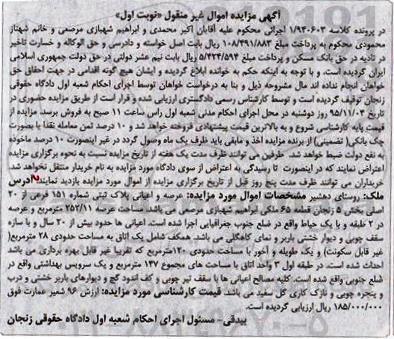 آگهی مزایده اموال غیر منقول «نوبت اول»
در پرونده کلاسه ۱/۹۳۰۶۰۳ اجرائی محکوم علیه آقایان اکبر محمدی و ابراهیم شهبازی مرصعی و خانم شهناز
محمودی محکوم به پرداخت مبلغ ۱۰۸/۳۹۱/۸۸۳ ریال بابت اصل خواسته و دادرسی و حق الوکاله و خسارت تاخیر
در تادیه در حق بانک مسکن و پرداخت مبلغ ۵/۴۲۴/۵۹۴ ریال بابت نیم عشر دولتی در حق دولت جمهوری اسلامی
ایران گردیده است. و با توجه به اینکه حکم به خوانده ابلاغ گردیده و ایشان هیچ گونه اقدامی در جهت احقاق حق
خواهان انجام نداده اند مال مشروحه ذیل و بنا به درخواست خواهان توسط اجرای احکام شعبه اول دادگاه حقوقی
زنجان توقیف گردیده است و توسط کارشناس رسمی دادگستری ارزیابی شده و قرار است از طریق مزایده حضوری در
تاریخ ۹۵/۱۱/۰۳ روز دوشنبه در محل اجرای احکام مدنی شعبه اول راس ساعت ۱۱ صبح به فروش برسد. مزایده از
قیمت پایه کارشناسی شروع و به بالاترین قیمت پیشنهادی فروخته خواهد شد و ۱۰ درصد ثمن معامله نقدا یا بصورت
چک بانکی( تضمینی) از برنده مزایده اخذ و مابقی باید ظرف یک ماه وصول گردد در غیر اینصورت ۱۰ درصد ماخوذه
به نفع دولت ضبط خواهد شد. طرفین می توانند ظرف مدت یک هفته از تاریخ مزایده نسبت به نحوه برگزاری مزایده
اعتراض نمایند که در اینصورت تا رسیدگی به اعتراض از سوی دادگاه مورد مزایده به نام خریدار منتقل نخواهد شد.
خریداران می توانند ظرف مدت پنج روز قبل از تاریخ برگزاری مزایده از اموال مورد مزایده بازدید نمایند. آدرس
ملک: روستای دهشیر مشخصات اموال مورد مزایده: عرصه و اعیانی پلاک ثبتی شماره ۱۵۱ فرعی از ۲۰
اصلی بخش ۵ زنجان قطعه ۶۵ ملکی ابراهیم شهبازی مرصعی می باشد. مساحت عرصه ۲۵۲/۱۱ مترمربع و عرصه
در ۲ طبقه و با یک حیاط واقع در ضلع جنوب جغرافیایی اجرا شده است. اعیانی ها حدود بیش از ۲۰ سال و با سازه
سقف چوبی و دیوار خشتی باربر و نمای کاهگلی می باشد. همکف شامل یک اتاق به مساحت حدودی ۲۸ مترمربع(
غیر قابل سکونت) و یک طویله و آخور با مساحت حدودی ۱۴۰مترمربع که تقریبا غیر قابل بهره برداری می باشد
احداث شده است. در طبقه اول ۳ واحد اتاق با مساحت های مجموع ۱۳۷ مترمربع و یک سرویس بهداشتی واقع در
ضلع جنوبی واقع شده است. کلیه مصالح اعیانی ها با سقف تیر چوبی و کف اندود گچ و دیوارهای باربر خشتی و درب
و پنجره چوبی و نازک کاری گل سفید می باشد. قیمت کارشناسی مورد مزایده: ارزش ۹۶ شعیر عمارت فوق
۱۸۵/۰۰۰/۰۰۰ ریال ارزیابی گردیده است.
بیدقی- مسئول اجرای احکام شعبه اول دادگاه حقوقی زنجان